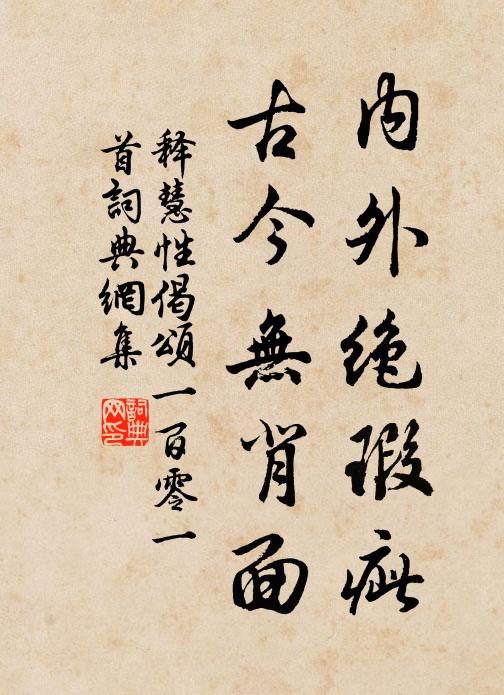 内外绝瑕疵
古今無背面
释慧性偈頌一百零一
首詞典網集
詞典
网印